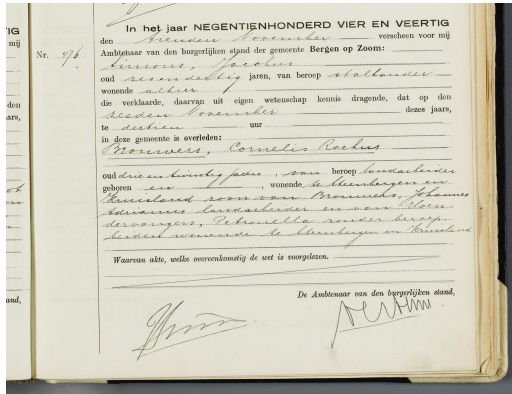 TIG
mij
den
aars,
tand,
In het jaar NEGENTIENHONDERD VIER EN VEERTIG
den tienden November verscheen voor mij
Ambtenaar van den burgerlijken stand der gemeente Bergen op Zoom:
Nr. 476
Simons, Jacobus
oud zesendertig jaren, van beroep stalhouder
wonende alhier
die verklaarde, daarvan uit eigen wetenschap kennis dragende, dat op den
zesden November dezes jaars,
te dertien uur
in deze gemeente is overleden:
Brouwers, Cornelis Rochus
oud drie en twintig jaren, van beroep landarbeider
geboren en , wonende te Steenbergen en
Kruisland zoon van Brouwers, Johannes
Adrianus landarbeider en van
Petronella zonder beroep
beiden wonende te Steenbergen en Kruisland
Waarvan akte, welke overeenkomstig de wet is voorgelezen.
De Ambtenaar van den burgerlijken stand,